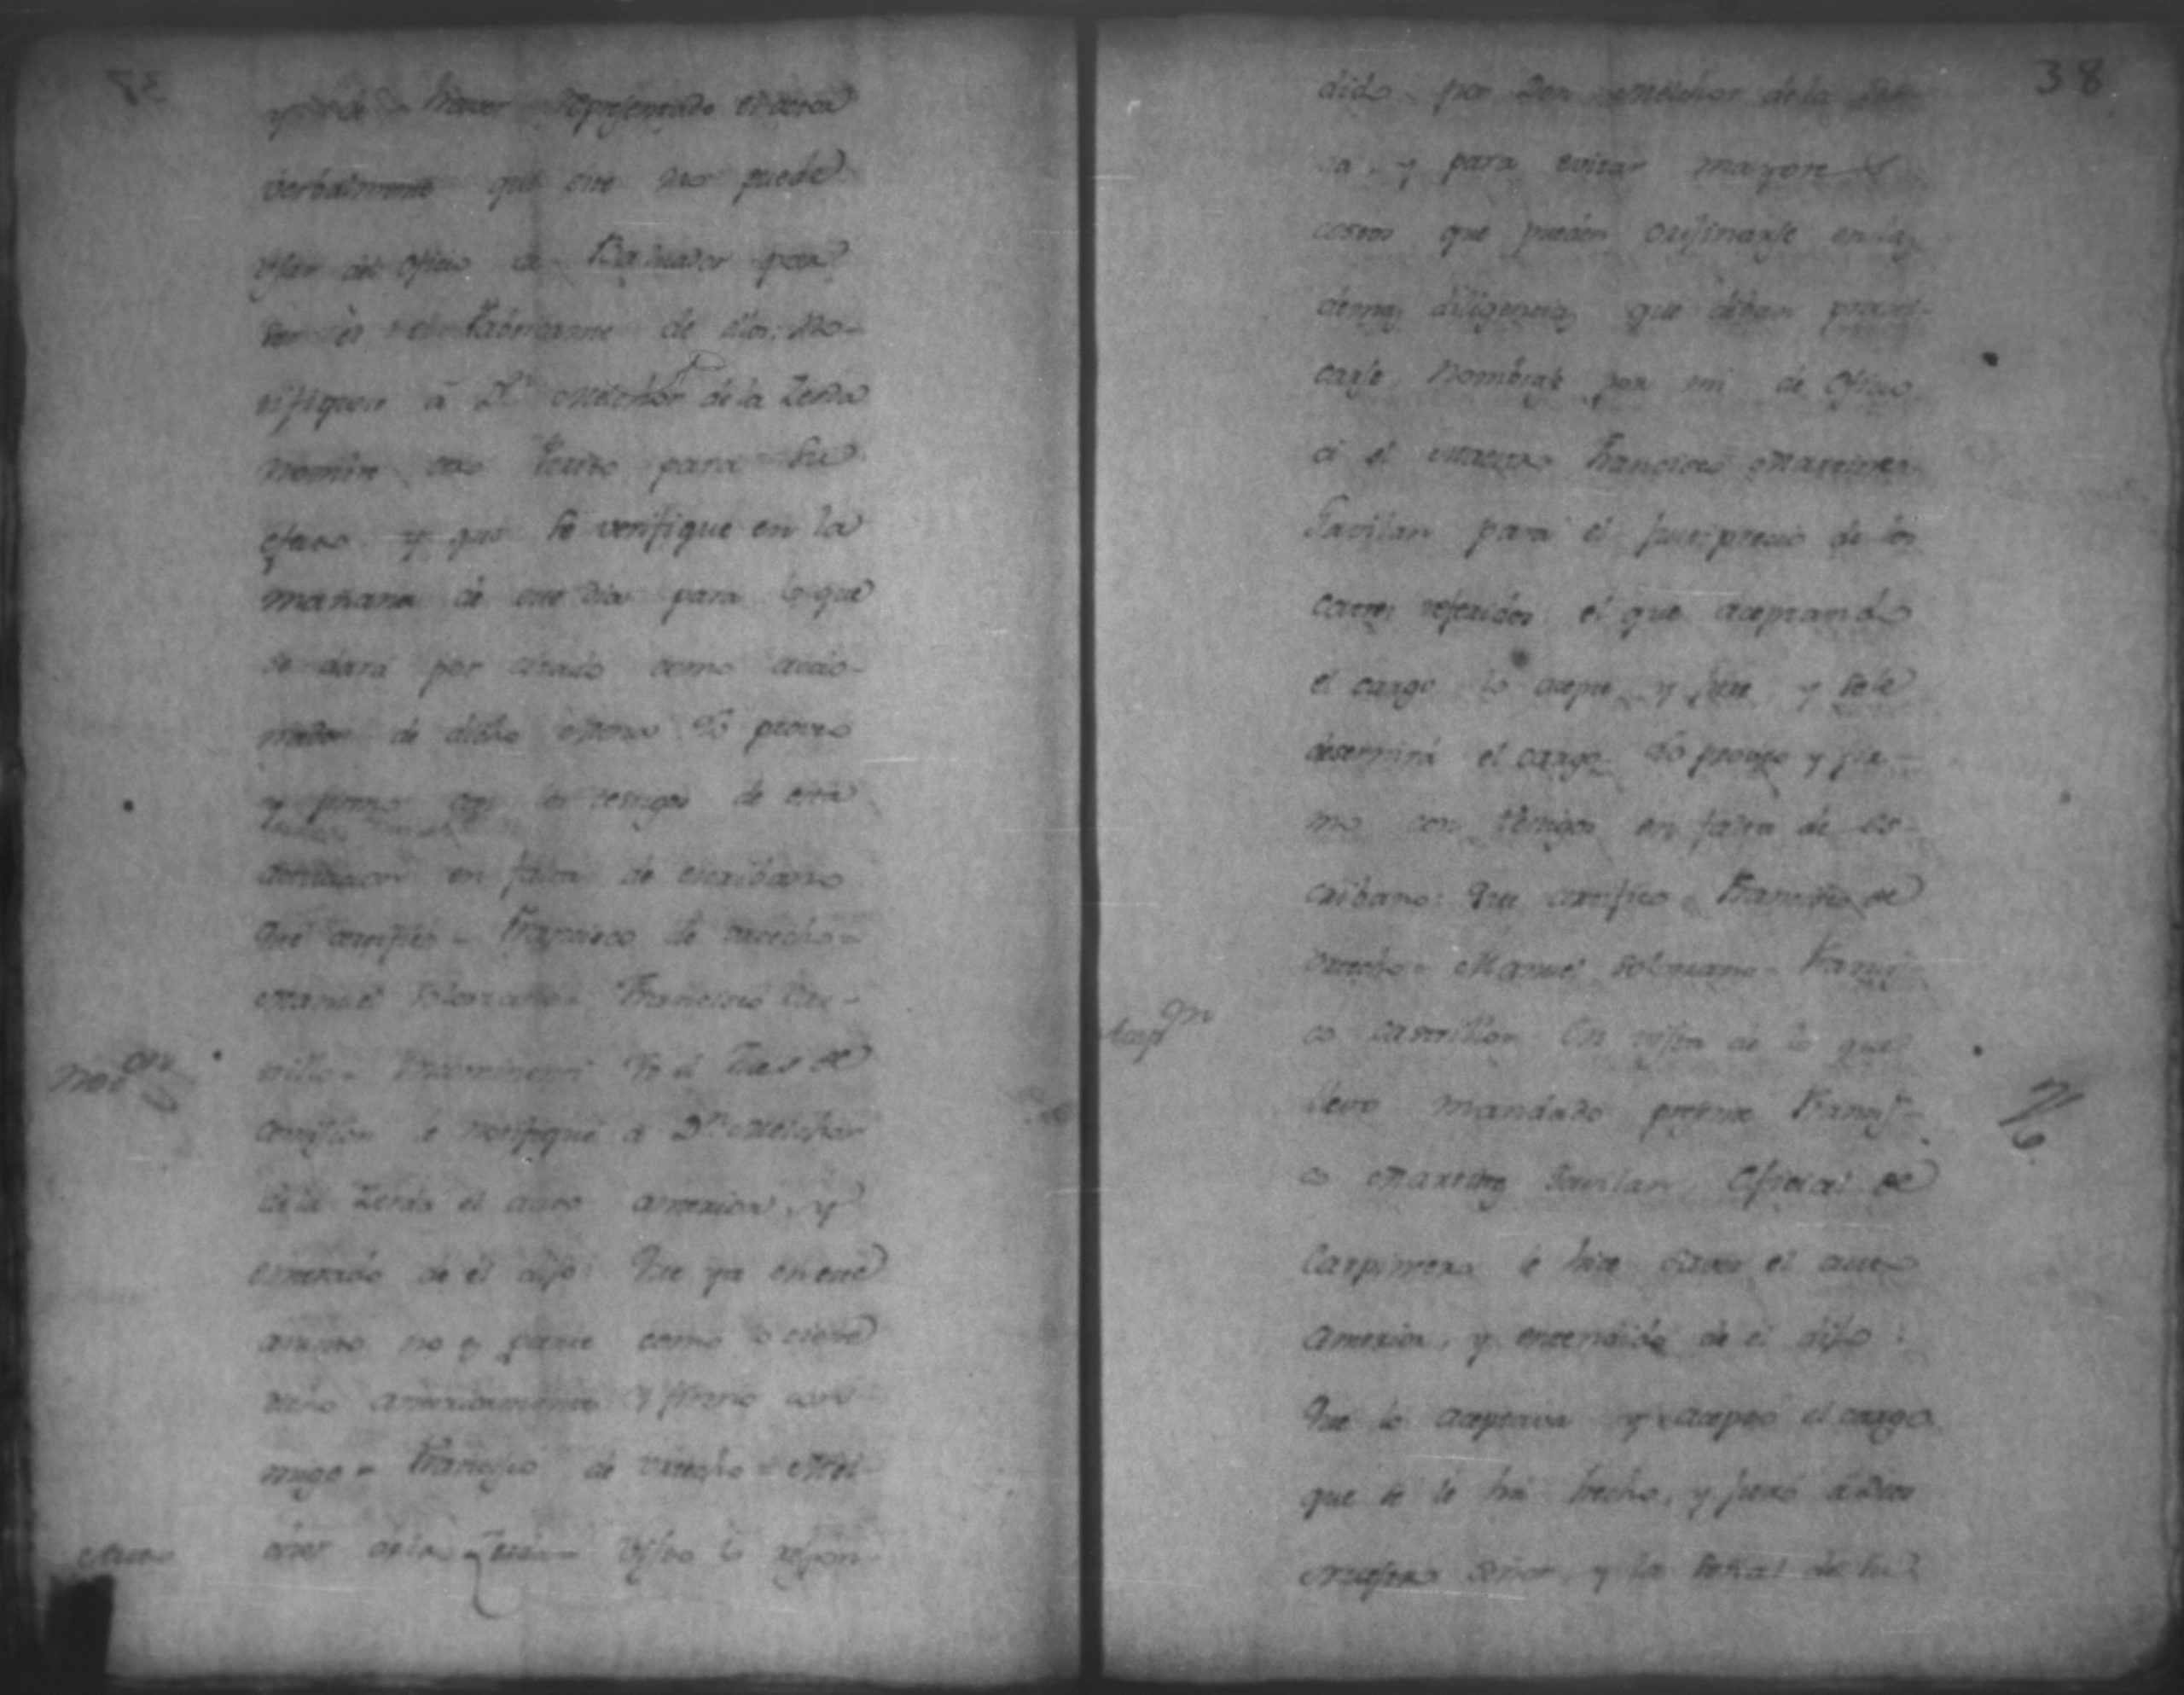 haver representado
verbalmente que este no puede
usar del oficio de Baluador por
ser el Fabricante de ellos: No-
tifiquese a Dn Melchor de la Zerda
nombre otro Perito para su
efecto y que se verifique en la
mañana de este dia para lo que
se dará por citado como acrio-
nador de dicho Lo proveo
y firmo con los testigos de esta
actuacion en falta de escribano
Que certifico = Francisco de Urrecho =
Manuel Solorzano = Francisco Cas-
trillo = Yo el Juez de
Comision le notifiqué a Dn Melchor
de la Zerda el auto anterior, y
enterado de él dijo: Que ya en este
asunto no es parte como lo tiene
dicho anteriormente y firmo con-
migo = Francisco de Urrecho = Mel-
chor de la Zerda = Visto lo respon-
Not on
Auto
38
dido por Don Melchor de la Zer-
da, y para evitar mayores
costos que pueden orijinarse en las
demas diligencias que deban practi-
carse nombrase por mi de Oficio
a el Maestro Francisco Martinez
Gavilan para el justiprecio de los
carros referidos el que aceptando
el cargo lo acepte y jure y se le
disernirá el cargo. Lo proveo y fir-
mo con testigos en falta de Es-
cribano: Que certifico = Francisco de
Urrecho = Manuel Solorzano = Francis-
co Castrillon En vista de lo que
llevo mandado presente Francis-
co Martinez Gavilan, Oficial de
Carpintero le hice saver el auto
anterior, y entendido de él dijo:
Que lo aceptava y acepto el cargo
que se le há hecho, y juró a Dios
nuestro Señor, y la Señal de su
Acept on